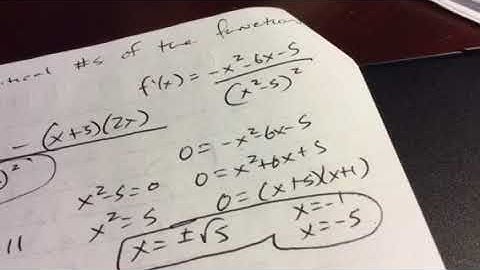 #s of the function
f'(x) = -x²-6x-5 / (x²-5)²
- (x+5)(2x)
0 = -x²-6x-5
x²-5=0
0 = x²+6x+5
x² = 5
0 = (x+5)(x+1)
x = ±√5
x=-1
x=-5